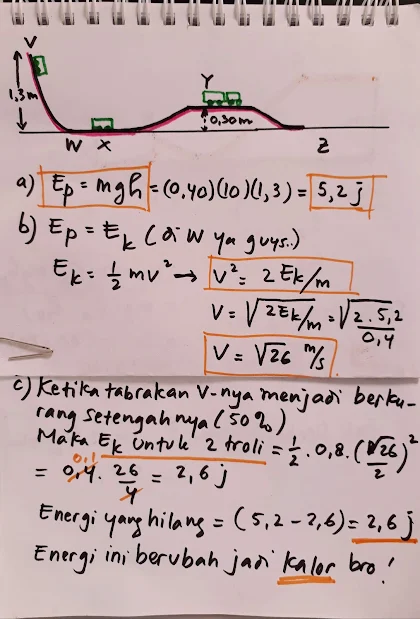 V
1,3m
Y
0,30m
W X Z
a) Ep = mgh = (0,40)(10)(1,3) = 5,2 j
b) Ep = Ek (di W ya guys..)
Ek = 1/2 mv² → v² = 2 Ek/m
V = √2Ek/m = √2.5,2/0,4
V = √26 m/s
c) Ketika tabrakan V-nya menjadi berku-
rang setengahnya (50%)
Maka Ek untuk 2 troli = 1/2 . 0,8 . (√26/2)²
0,1
= 0,4 . 26/4 = 2,6 j
Energi yang hilang = (5,2 - 2,6) = 2,6 j
Energi ini berubah jadi kalor bro!